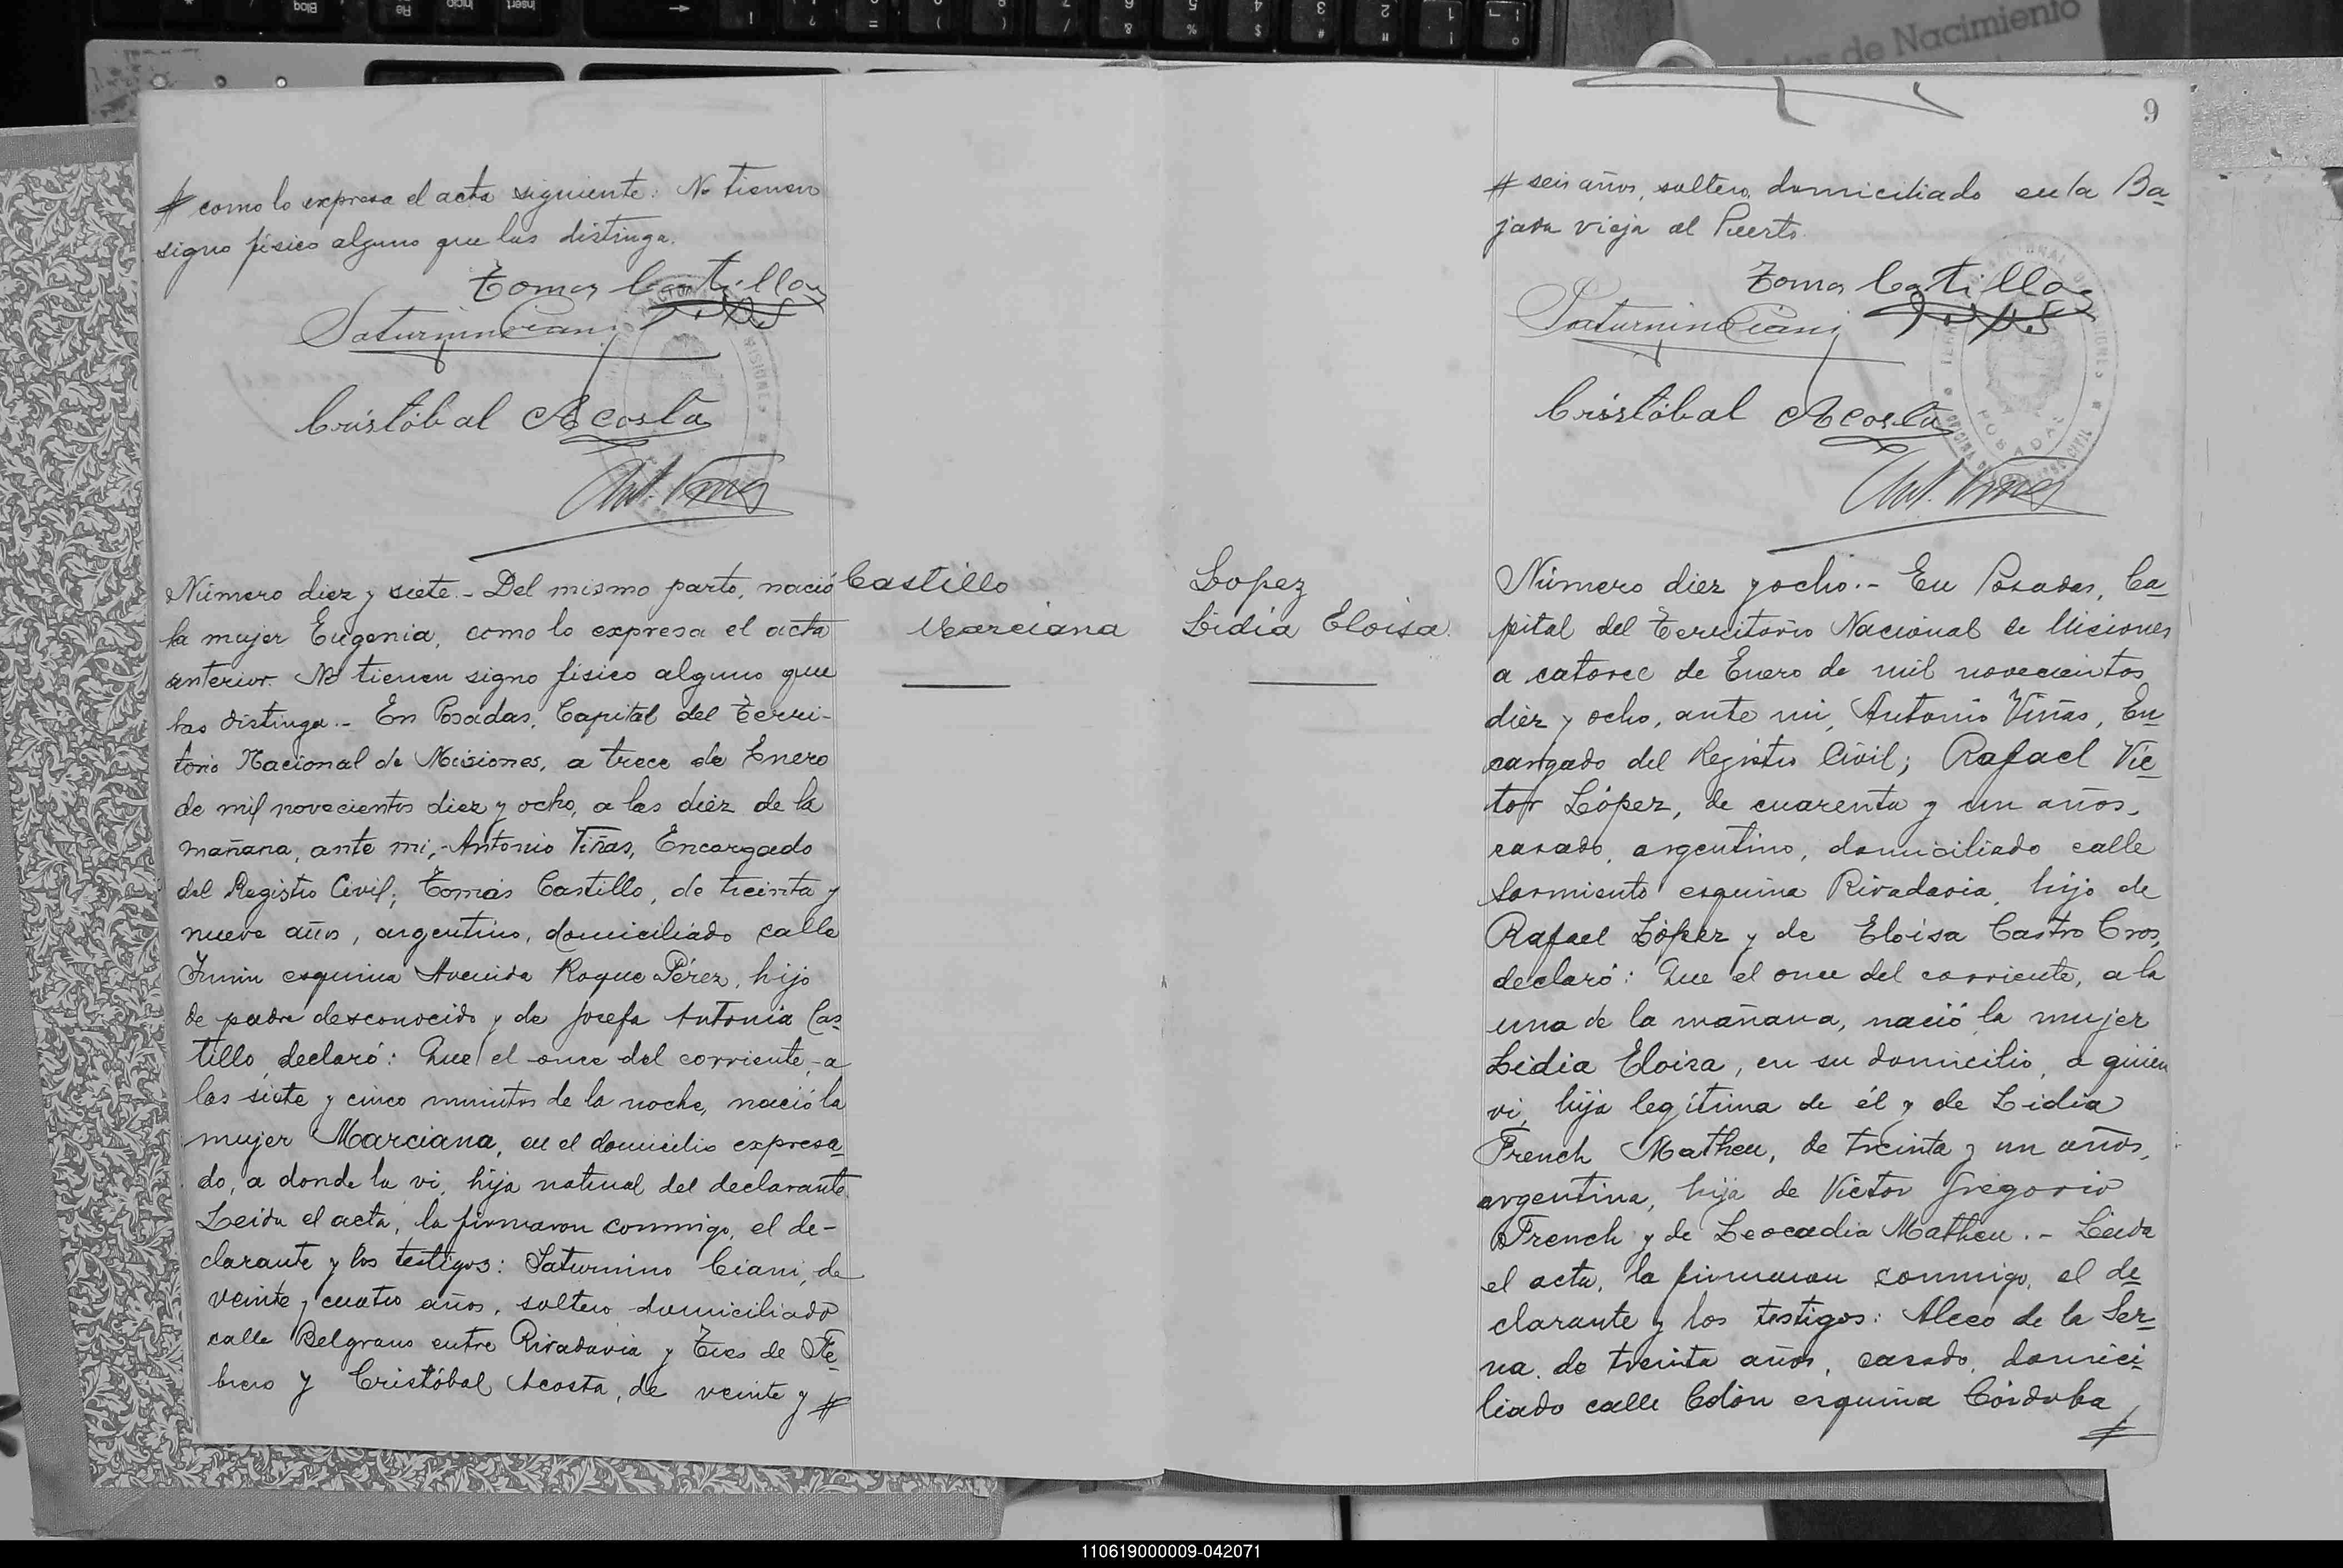 # como lo expresa el acta siguiente: No tienen
signo físico alguno que las distinga.
Tomas Castillo
Saturnino Ciani
Cristóbal Acosta
Ant. Viñas
Número diez y siete.- Del mismo parto, nació
la mujer Eugenia, como lo expresa el acta
anterior. No tienen signo físico alguno que
las distinga.- En Posadas, Capital del Terri-
torio Nacional de Misiones, a trece de Enero
de mil novecientos diez y ocho, a las diez de la
mañana, ante mi, Antonio Viñas, Encargado
del Registro Civil; Tomás Castillo, de treinta y
nueve años, argentino, domiciliado calle
Junin esquina Avenida Roque Pérez, hijo
de padre desconocido y de Josefa Antonia Cas-
tillo, declaró: Que el once del corriente, a
las siete y cinco minutos de la noche, nació la
mujer Marciana, en el domicilio expresa-
do, a donde la vi, hija natural del declarante.
Leida el acta, la firmaron conmigo, el de-
clarante y los testigos: Saturnino Ciani, de
veinte y cuatro años, soltero domiciliado
calle Belgrano entre Rivadavia y Tres de Fe-
brero y Cristóbal Acosta, de veinte y #
Castillo
Marciana
Lopez
Lidia Eloisa.
9
# seis años, soltero, domiciliado en la Ba-
jada vieja al Puerto.
Tomas Castillo
Saturnino Ciani
Cristóbal Acosta
POSADAS
Ant. Viñas
Número diez y ocho.- En Posadas, Ca-
pital del Territorio Nacional de Misiones
a catorce de Enero de mil novecientos
diez y ocho, ante mi, Antonio Viñas, En-
cargado del Registro Civil; Rafael Vic-
tor López, de cuarenta y un años,
casado, argentino, domiciliado calle
Sarmiento esquina Rivadavia, hijo de
Rafael López y de Eloisa Castro Cros,
declaró: Que el once del corriente, a la
una de la mañana, nació la mujer
Lidia Eloisa, en su domicilio, a quien
vi, hija legítima de él y de Lidia
French Matheu, de treinta y un años,
argentina, hija de Victor Gregorio
French y de Leocadia Matheu.- Leida
el acta, la firmaron conmigo, el de-
clarante y los testigos: Alceo de la Ser-
na, de treinta años, casado, domici-
liado calle Colón esquina Córdoba
#
de Nacimiento
110619000009-042071